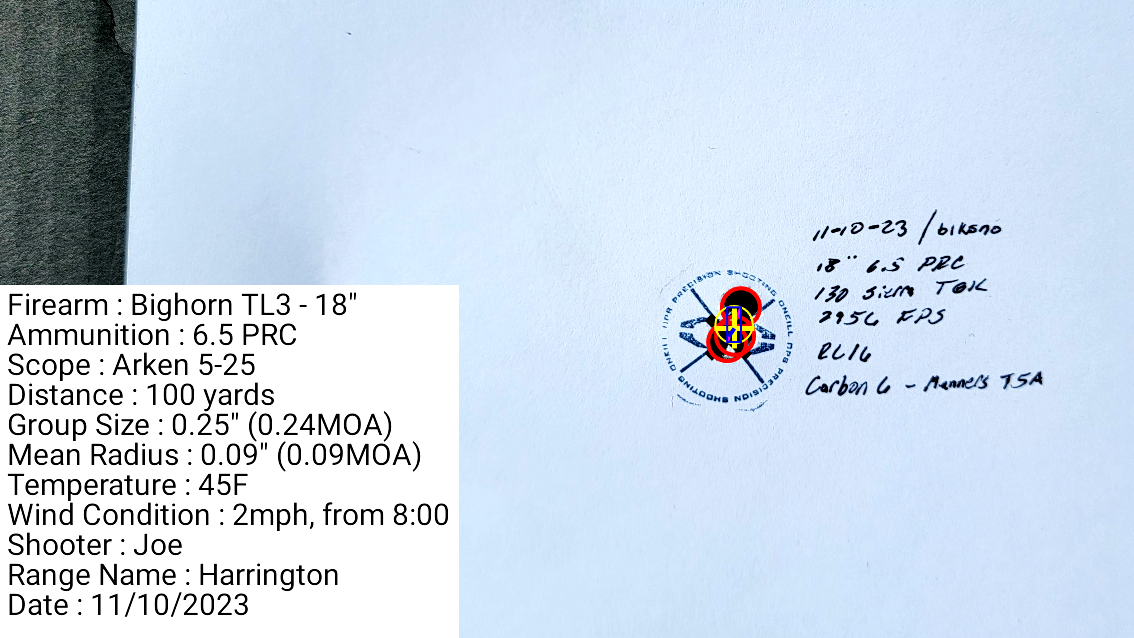 11-10-23 / bikeno
18" 6.5 PRC
130 Sierra TGK
2956 FPS
RL16
Carbon 6 - Manners T5A
PRECISION SHOOTING ONEILL OPS PRECISION SHOOTING ONEILL OPS
Firearm : Bighorn TL3 - 18"
Ammunition : 6.5 PRC
Scope : Arken 5-25
Distance : 100 yards
Group Size : 0.25" (0.24MOA)
Mean Radius : 0.09" (0.09MOA)
Temperature : 45F
Wind Condition : 2mph, from 8:00
Shooter : Joe
Range Name : Harrington
Date : 11/10/2023